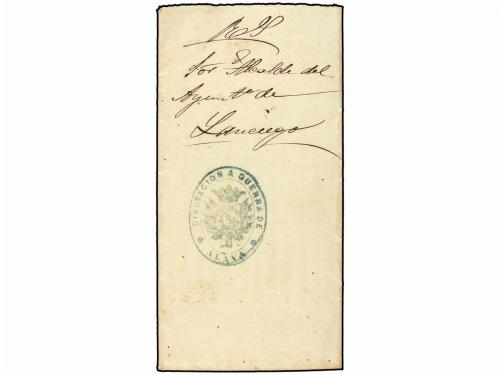 R S
Sor Alcalde del
Ayunto de
Lanciego
DIPUTACION A GUERRA DE
ALAVA